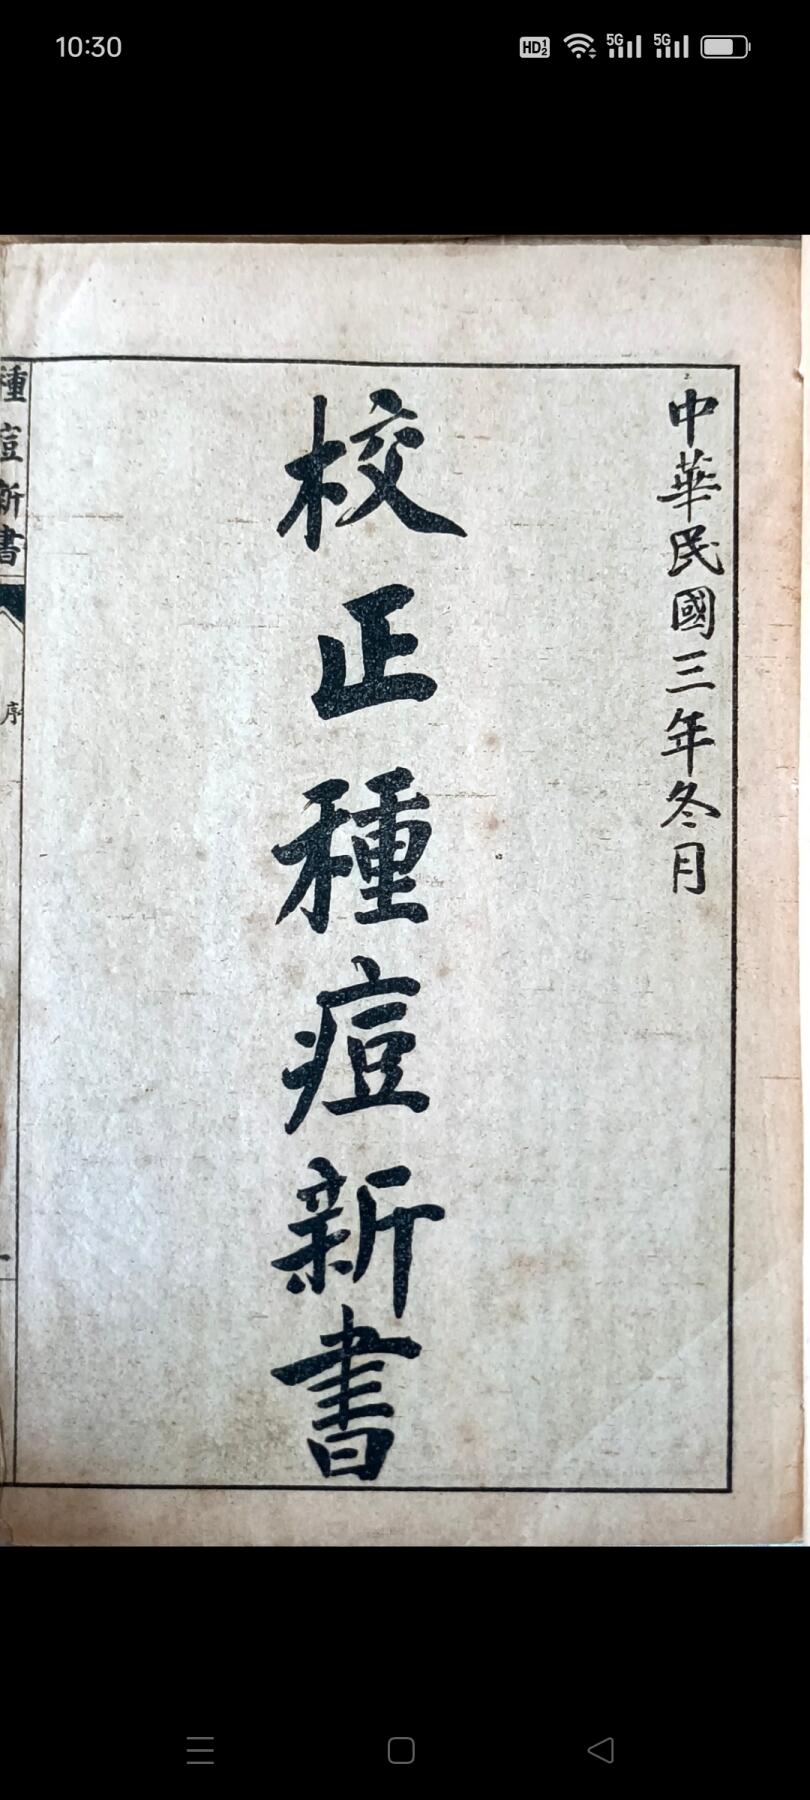 10:30
HD 1 2
5G
5G
中華民國三年冬月
校正種痘新書
種痘新書
序
一